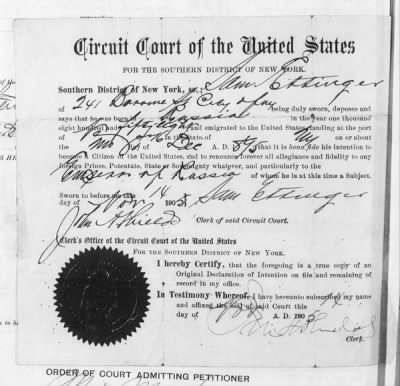 Circuit Court of the United States
FOR THE SOUTHERN DISTRICT OF NEW YORK.
Southern District of New York, ss.: Sam Ettinger
of 241 Broome St City of being duly sworn, deposes and
says that he was born in Russia in the year one thousand
eight hundred and fifty eight and emigrated to the United States, landing at the port
of N Y in the State of N Y on or about
the day of Dec A. D. 189 that it is bona fide his intention to
become a Citizen of the United States, and to renounce forever all allegiance and fidelity to any
foreign Prince, Potentate, State or Sovereignty whatever, and particularly to the
Emperor of Russia of whom he is at this time a Subject.
Sworn to before me this 14
day of Nov 190 Sam Ettinger
John A Shields Clerk of said Circuit Court.
Clerk's Office of the Circuit Court of the United States
FOR THE SOUTHERN DISTRICT OF NEW YORK.
I hereby Certify, that the foregoing is a true copy of an
Original Declaration of Intention on file and remaining of
record in my office.
In Testimony Whereof, I have hereunto subscribed my name
and affixed the seal of said Court this 14
day of Nov A. D. 190
Clerk.
ORDER OF COURT ADMITTING PETITIONER